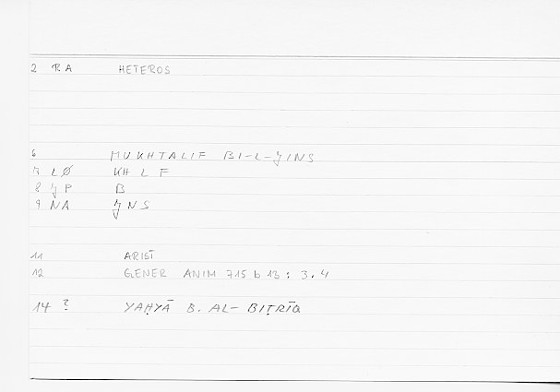 2 RA HETEROS
6 MUKHTALIF BI-L-JINS
7 LØ KHLF
8 JP B
9 NA JNS
11 ARIST
12 GENER ANIM 715 b 13 : 3.4
14 ? YAḤYĀ B. AL-BIṬRĪQ